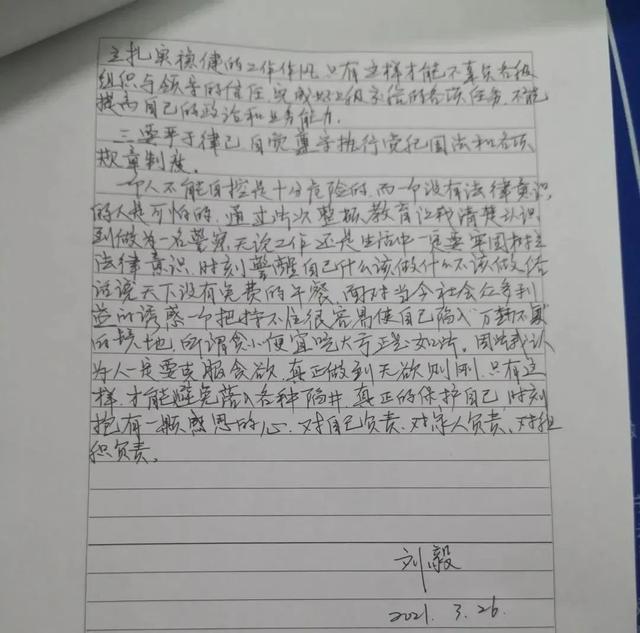 立扎实稳健的工作作风只有这样才能不辜负各级
组织与领导的信任,完成好上级交给的各项任务,不能
提高自己的政治和业务能力.
三要严于律己自觉遵守执行党纪国法和各项
规章制度。
一个人不能自控是十分危险的,而一个没有法律意识
的人是可怕的,通过此次整顿教育让我清楚认识
到做为一名警察无论工作还是生活中一定要牢固树立
法律意识,时刻警醒自己什么该做什么不该做俗
话说天下没有免费的午餐,面对当今社会众多利
益的诱惑一个把持不住很容易使自己陷入"万劫不复"
的境地,所谓贪小便宜吃大亏正是如此。因此我认
为人一定要克服贪欲,真正做到无欲则刚,只有这
样,才能避免落入各种陷井,真正的保护自己,时刻
抱有一颗感恩的心.对自己负责.对家人负责、对组
织负责。
刘毅
2021.3.26.